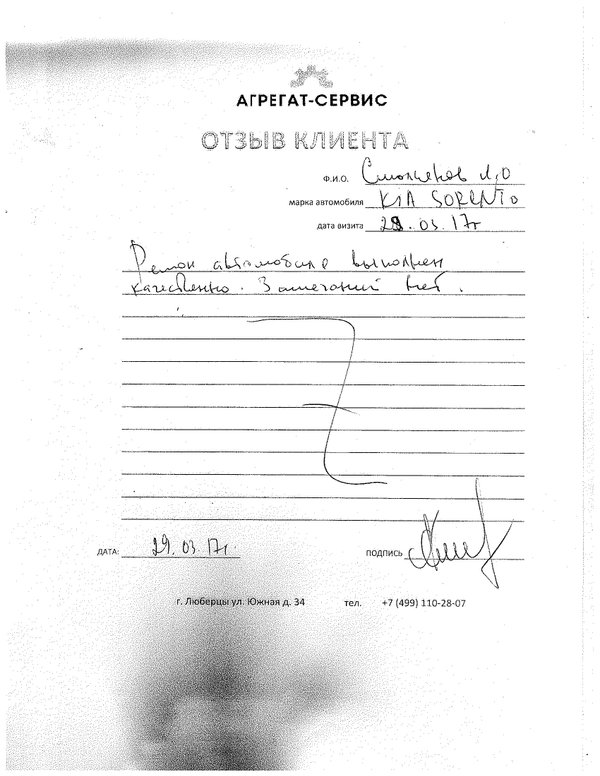 АГРЕГАТ-СЕРВИС
ОТЗЫВ КЛИЕНТА
Ф.И.О.
марка автомобиля KIA SORENTO
дата визита 29.03.17г
Ремонт автомобиля выполнен
качественно. Замечаний нет.
ДАТА: 29.03.17г.
ПОДПИСЬ
г. Люберцы ул. Южная д. 34 тел. +7 (499) 110-28-07